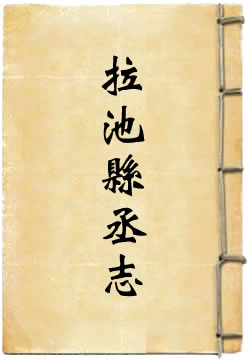 拉池縣丞志